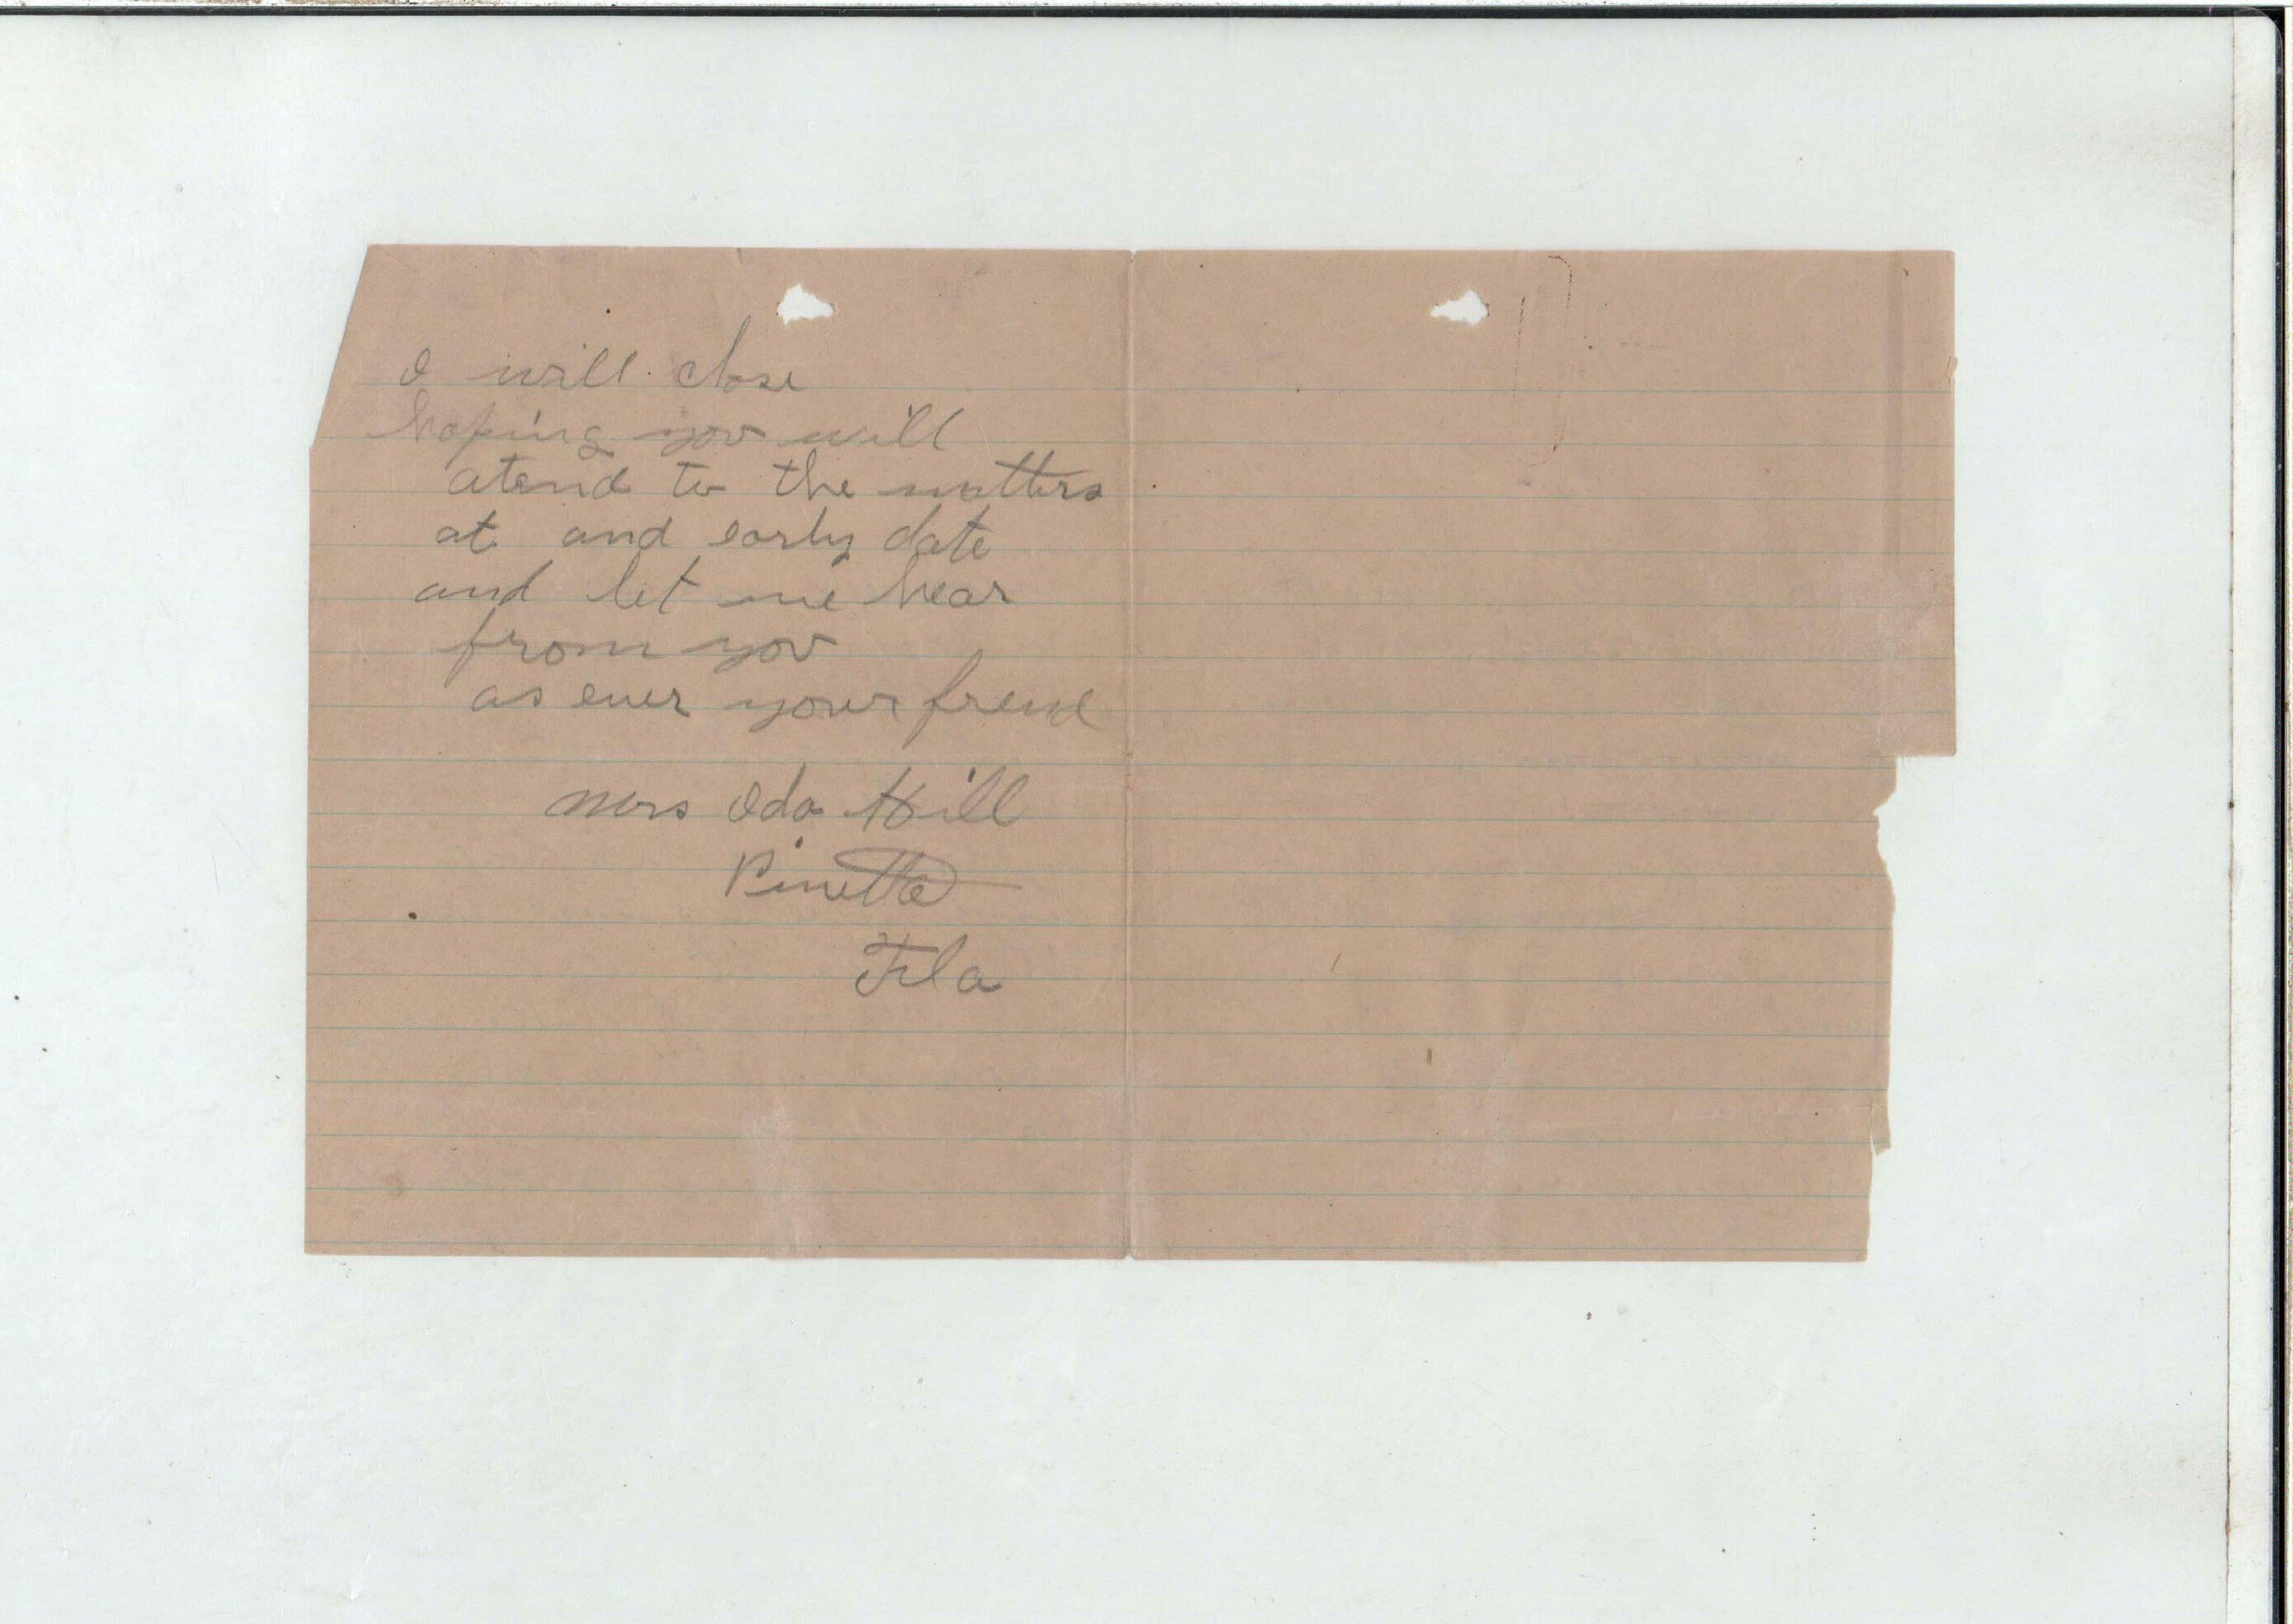 I will close
hoping you will
atend to the matters
at and early date
and let me hear
from you
as ever your frend
Mrs Ida Hill
Pinetta
Fla